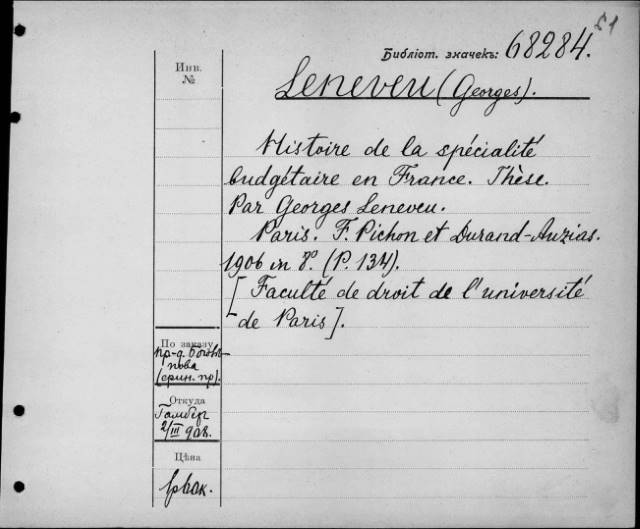 51
Библіот. значекъ: 68284.
Инв.
№
Leneveu (Georges).
Histoire de la spécialité
budgétaire en France. Thèse.
Par Georges Leneveu.
Paris. F. Pichon et Durand-Auzias.
1906 in 8°. (P. 134).
[Faculté de droit de l'université
de Paris].
По заказу
пр-д. Боголѣ-
пова
Откуда
Гамбер
2/III 908.
Цѣна